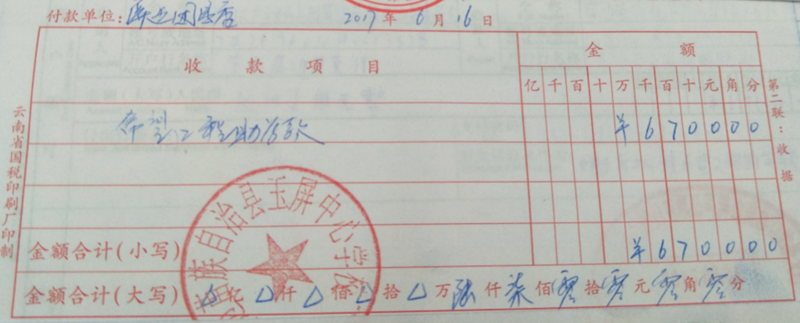 付款单位: 店 2017年6月16日
金额
收款项目 亿千百十万千百十元角分
希望工程助学款 ¥670000
金额合计(小写) ¥670000
金额合计(大写) 亿 仟 佰 拾 万陆仟柒佰零拾零元零角零分
族自治县玉屏中心学校
第二联:收据
云南省国税印刷厂印制